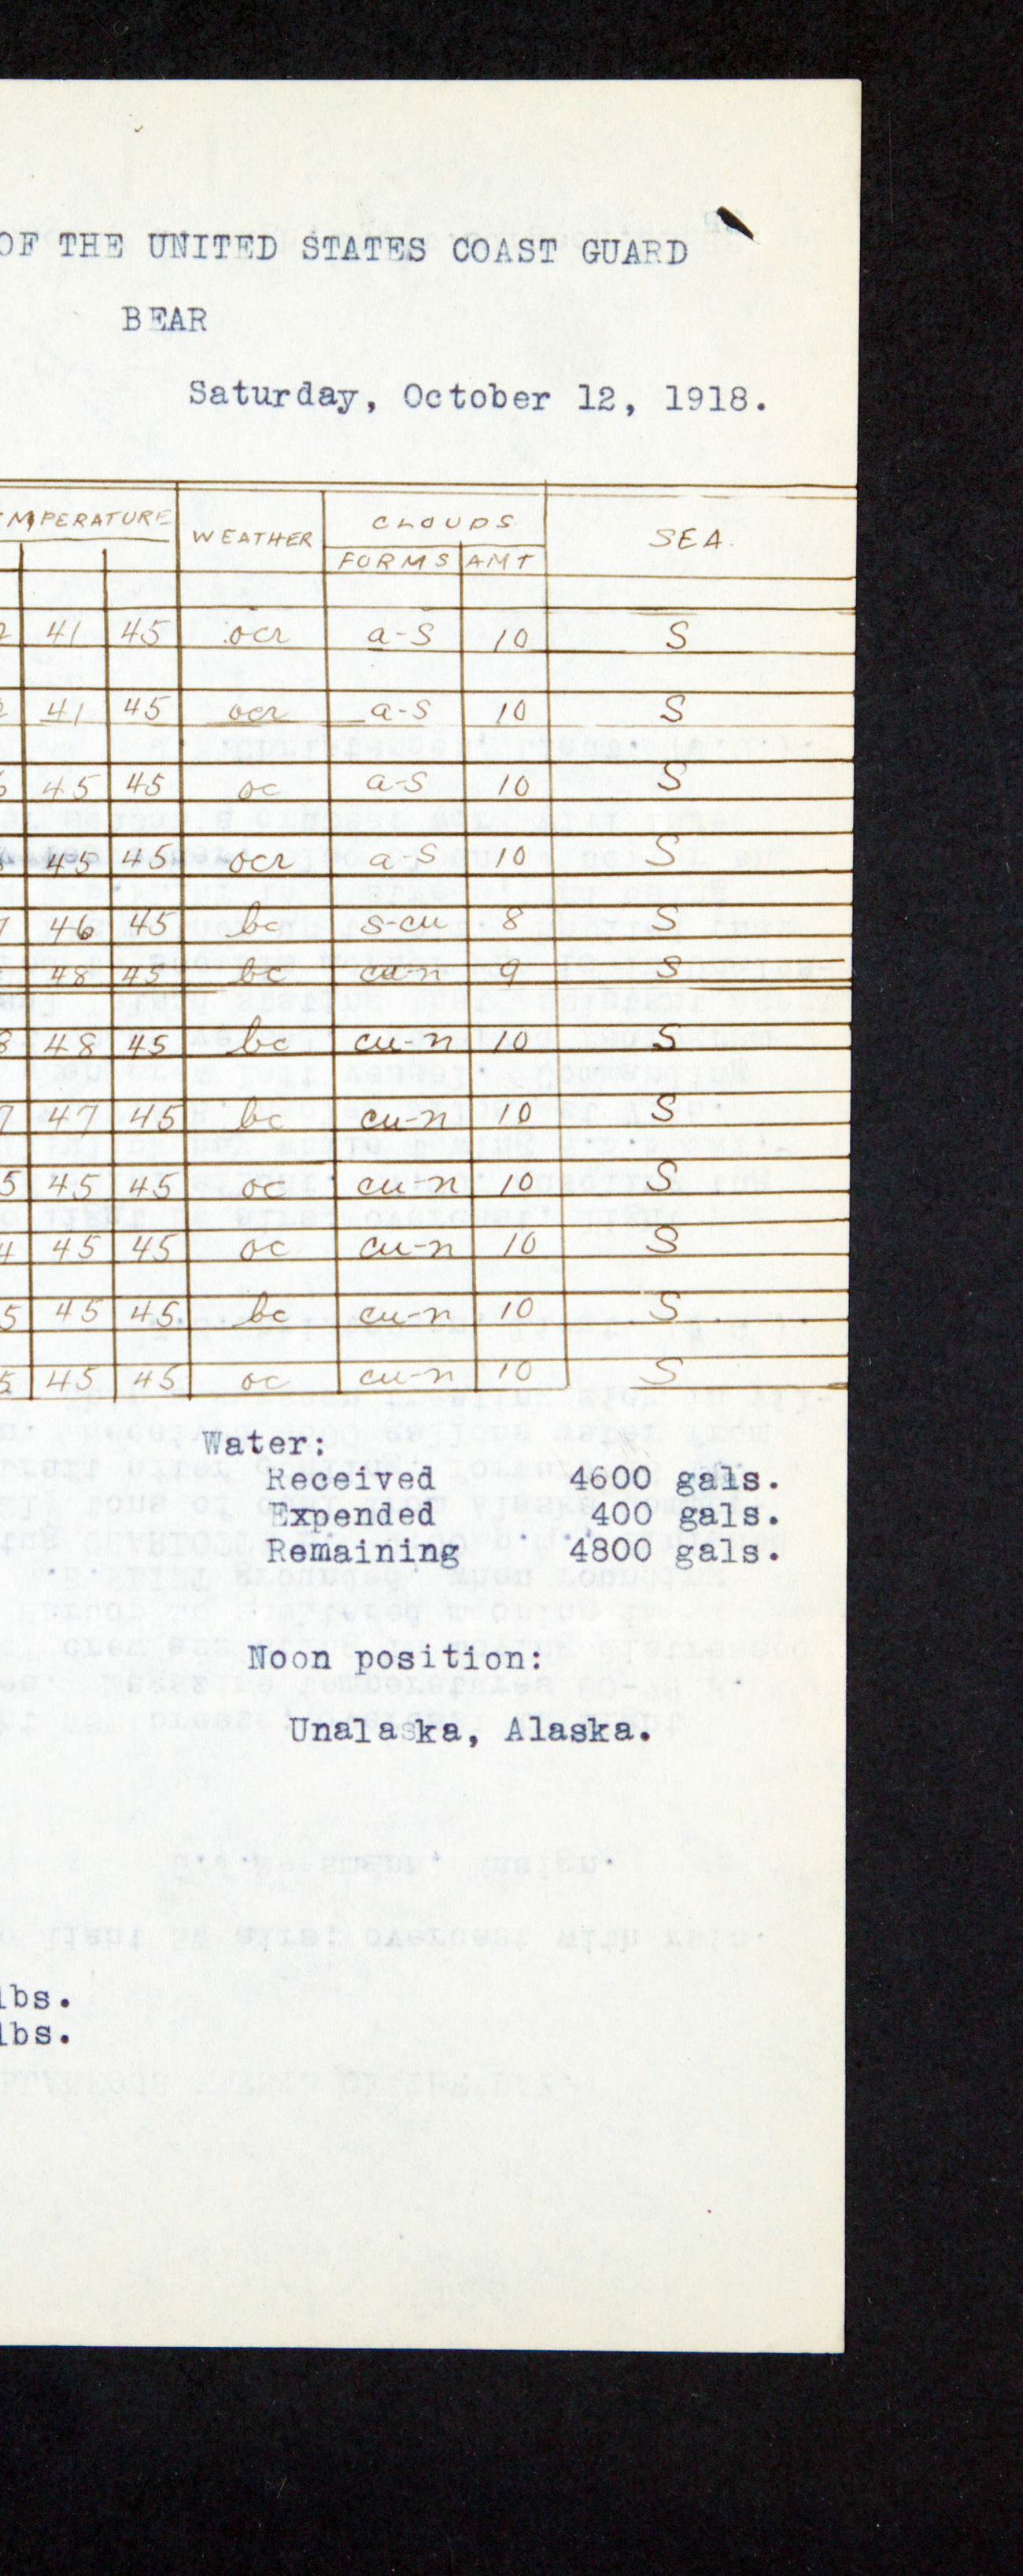 OF THE UNITED STATES COAST GUARD
BEAR
Saturday, October 12, 1918.
MPERATURE WEATHER CLOUDS SEA.
FORMS AMT
2 41 45 ocr a-s 10 S
2 41 45 ocr a-s 10 S
6 45 45 oc a-s 10 S
8 45 45 ocr a s 10 S
7 46 45 bc s-cu 8 S
48 45 bc cu-n 9 S
8 48 45 bc cu-n 10 S
7 47 45 bc cu-n 10 S
5 45 45 oc cu-n 10 S
4 45 45 oc cu-n 10 S
5 45 45 bc cu-n 10 S
5 45 45 oc cu-n 10 S
Water:
Received 4600 gals.
Expended 400 gals.
Remaining 4800 gals.
Noon position:
Unalaska, Alaska.
lbs.
lbs.